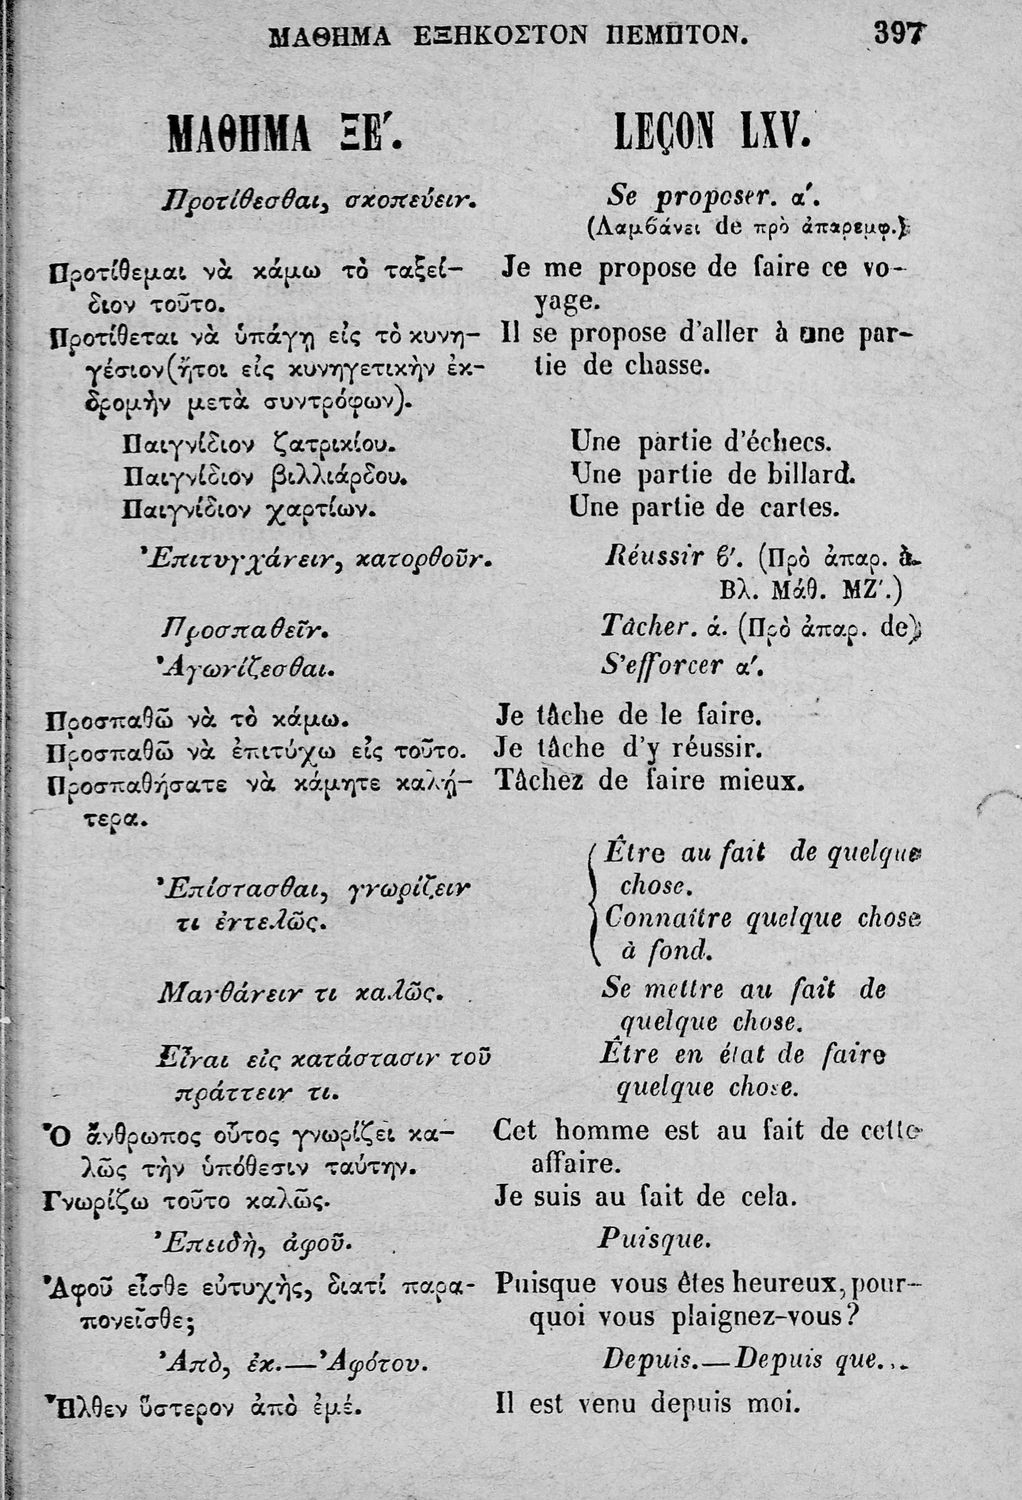 ΜΑΘΗΜΑ ΕΞΗΚΟΣΤΟΝ ΠΕΜΠΤΟΝ. 397
ΜΑΘΗΜΑ ΞΕ΄.
Προτίθεσθαι, σκοπεύειν.
Προτίθεμαι νὰ κάμω τὸ ταξεί-
διον τοῦτο.
Προτίθεται νὰ ὑπάγῃ εἰς τὸ κυνη-
γέσιον (ἤτοι εἰς κυνηγετικὴν ἐκ-
δρομὴν μετὰ συντρόφων).
Παιγνίδιον ζατρικίου.
Παιγνίδιον βιλλιάρδου.
Παιγνίδιον χαρτίων.
Ἐπιτυγχάνειν, κατορθοῦν.
Προσπαθεῖν.
Ἀγωνίζεσθαι.
Προσπαθῶ νὰ τὸ κάμω.
Προσπαθῶ νὰ ἐπιτύχω εἰς τοῦτο.
Προσπαθήσατε νὰ κάμητε καλή-
τερα.
Ἐπίστασθαι, γνωρίζειν
τι ἐντελῶς.
Μανθάνειν τι καλῶς.
Εἶναι εἰς κατάστασιν τοῦ
πράττειν τι.
Ὁ ἄνθρωπος οὗτος γνωρίζει κα-
λῶς τὴν ὑπόθεσιν ταύτην.
Γνωρίζω τοῦτο καλῶς.
Ἐπειδὴ, ἀφοῦ.
Ἀφοῦ εἶσθε εὐτυχὴς, διατί παρα-
πονεῖσθε;
Ἀπὸ, ἐκ.—Ἀφότου.
Ἦλθεν ὕστερον ἀπὸ ἐμέ.
LEÇON LXV.
Se proposer. α΄.
(Λαμβάνει de πρὸ ἀπαρεμφ.)
Je me propose de faire ce vo-
yage.
Il se propose d'aller à une par-
tie de chasse.
Une partie d'échecs.
Une partie de billard.
Une partie de cartes.
Réussir β΄. (Πρὸ ἀπαρ. à.
Βλ. Μάθ. ΜΖ΄.)
Tâcher. ά. (Πρὸ ἀπαρ. de)
S'efforcer α΄.
Je tâche de le faire.
Je tâche d'y réussir.
Tâchez de faire mieux.
Être au fait de quelque
chose.
Connaître quelque chose
à fond.
Se mettre au fait de
quelque chose.
Être en état de faire
quelque chose.
Cet homme est au fait de cette
affaire.
Je suis au fait de cela.
Puisque.
Puisque vous êtes heureux, pour-
quoi vous plaignez-vous?
Depuis.—Depuis que...
Il est venu depuis moi.